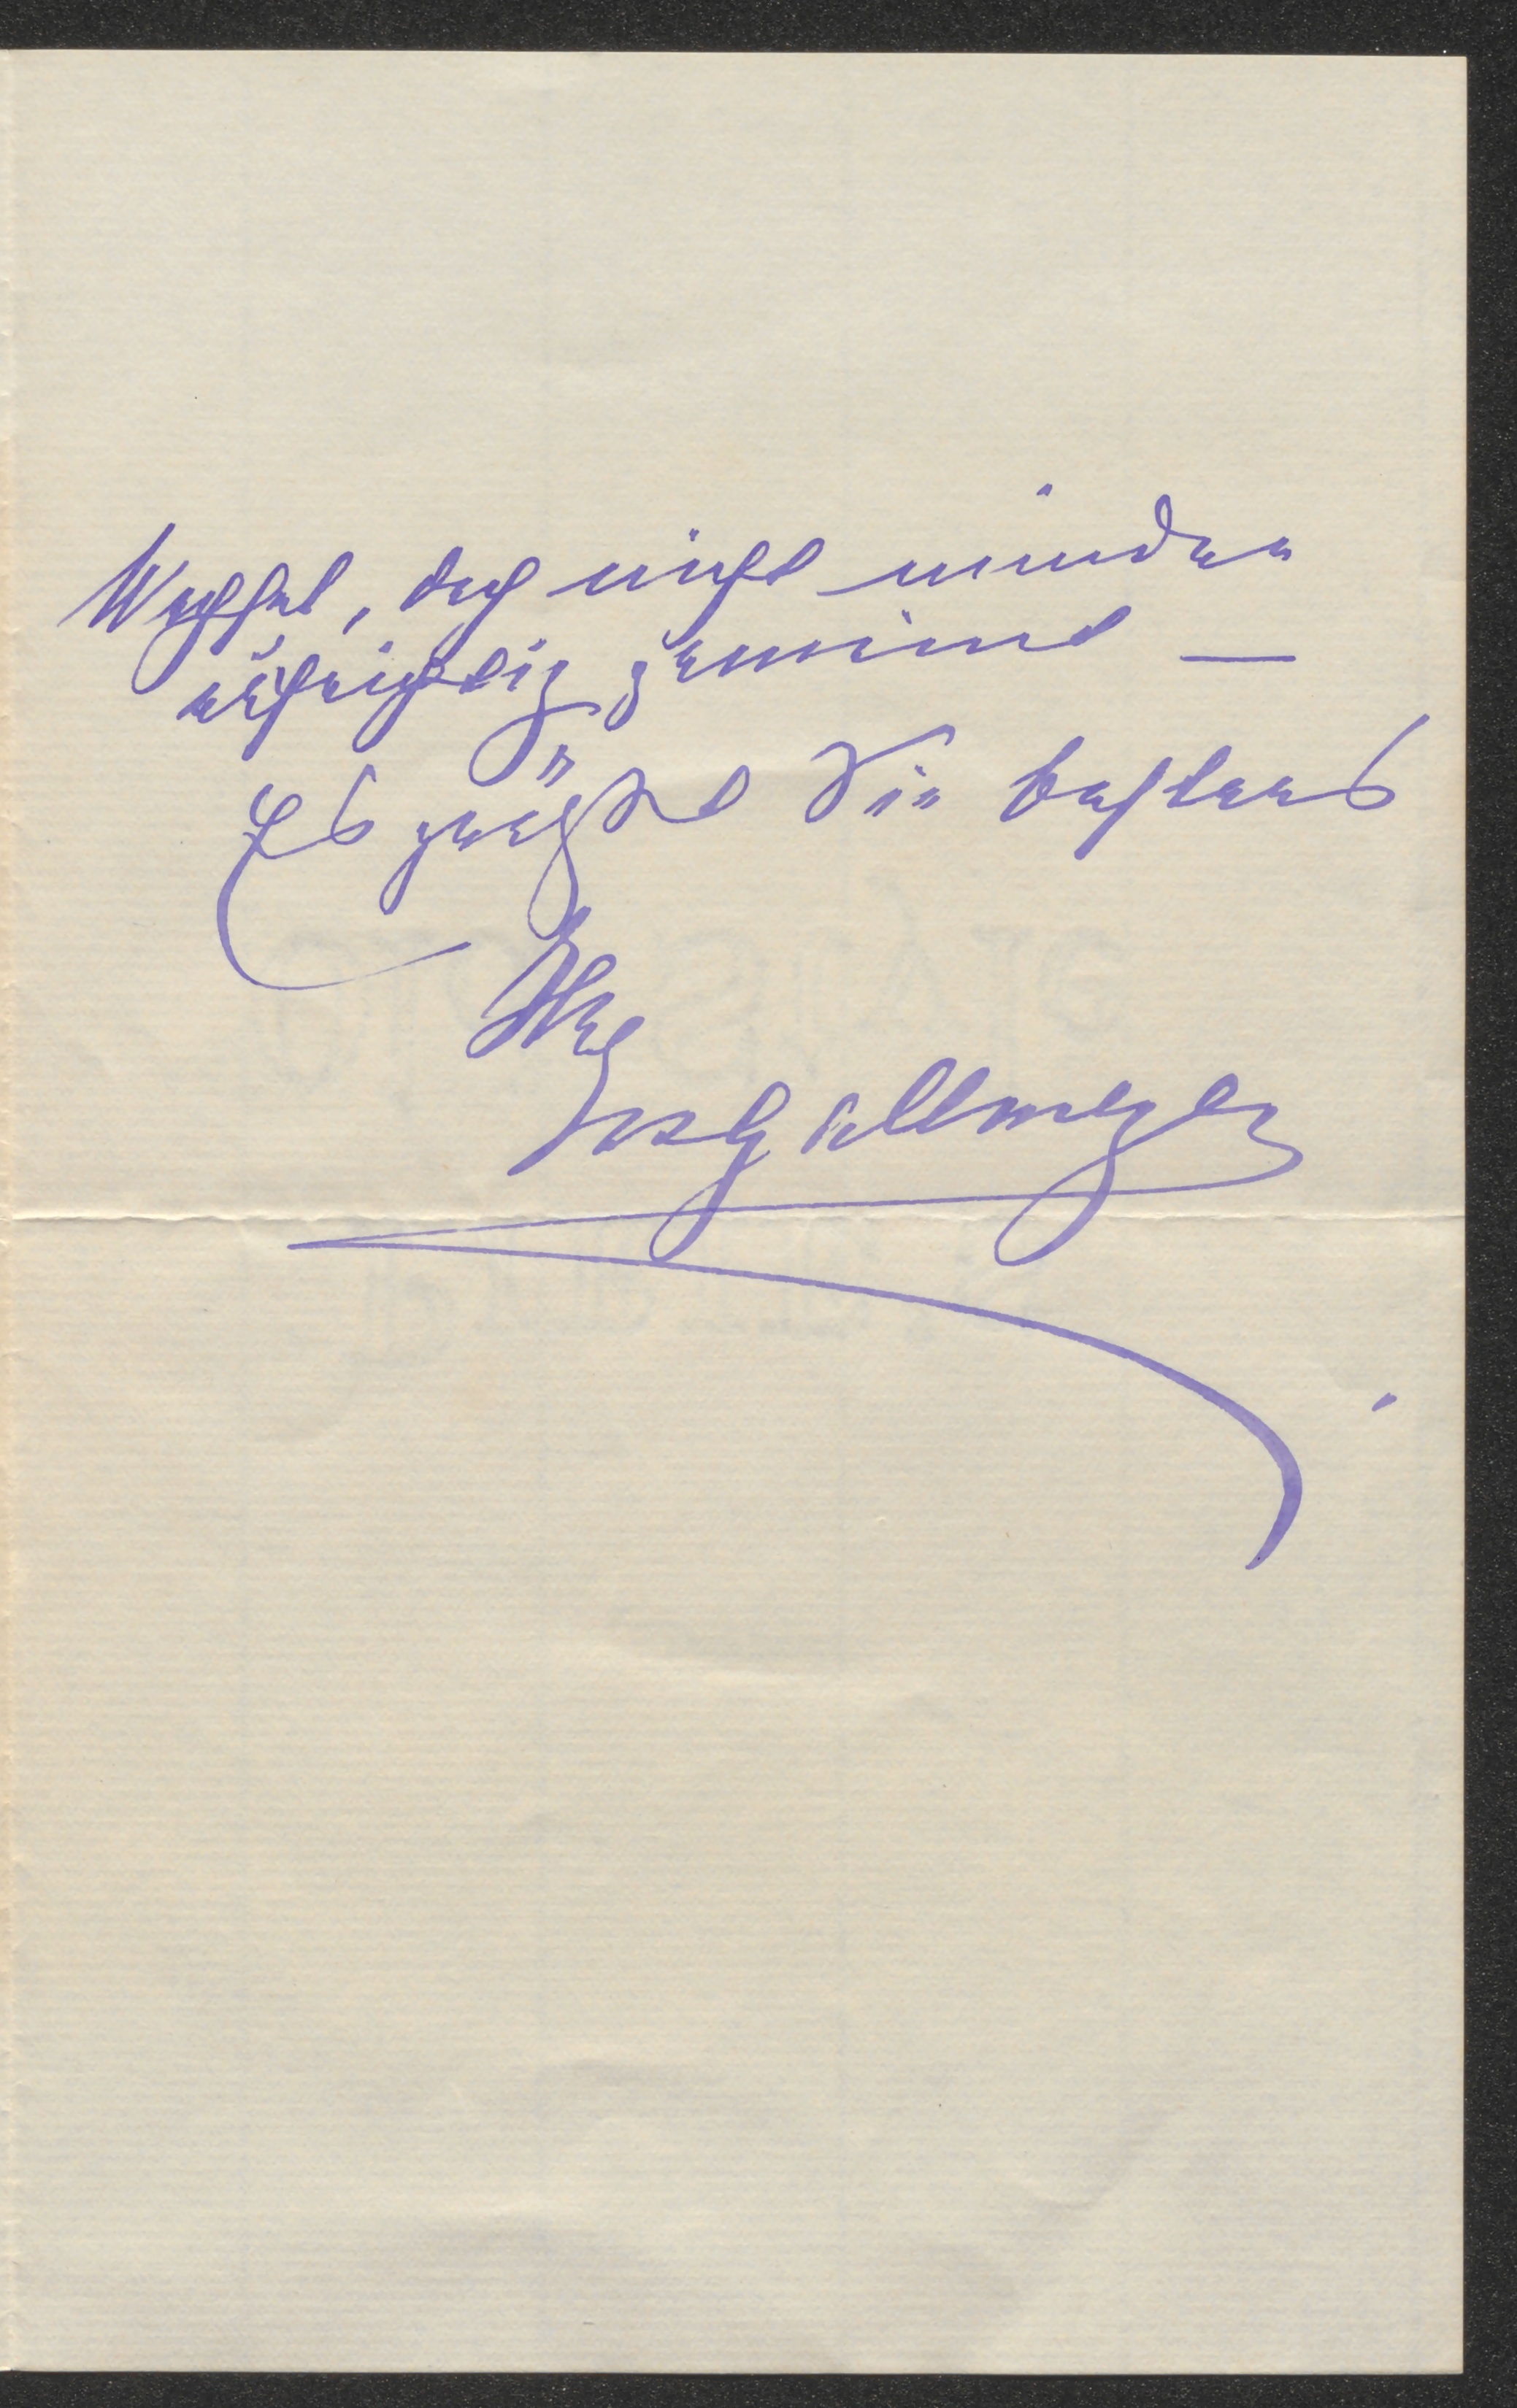 Wechsel, doch nicht minder
aufrichtig gemeint —
Es grüßt Sie bestens
Ihre
JosGallmeyer